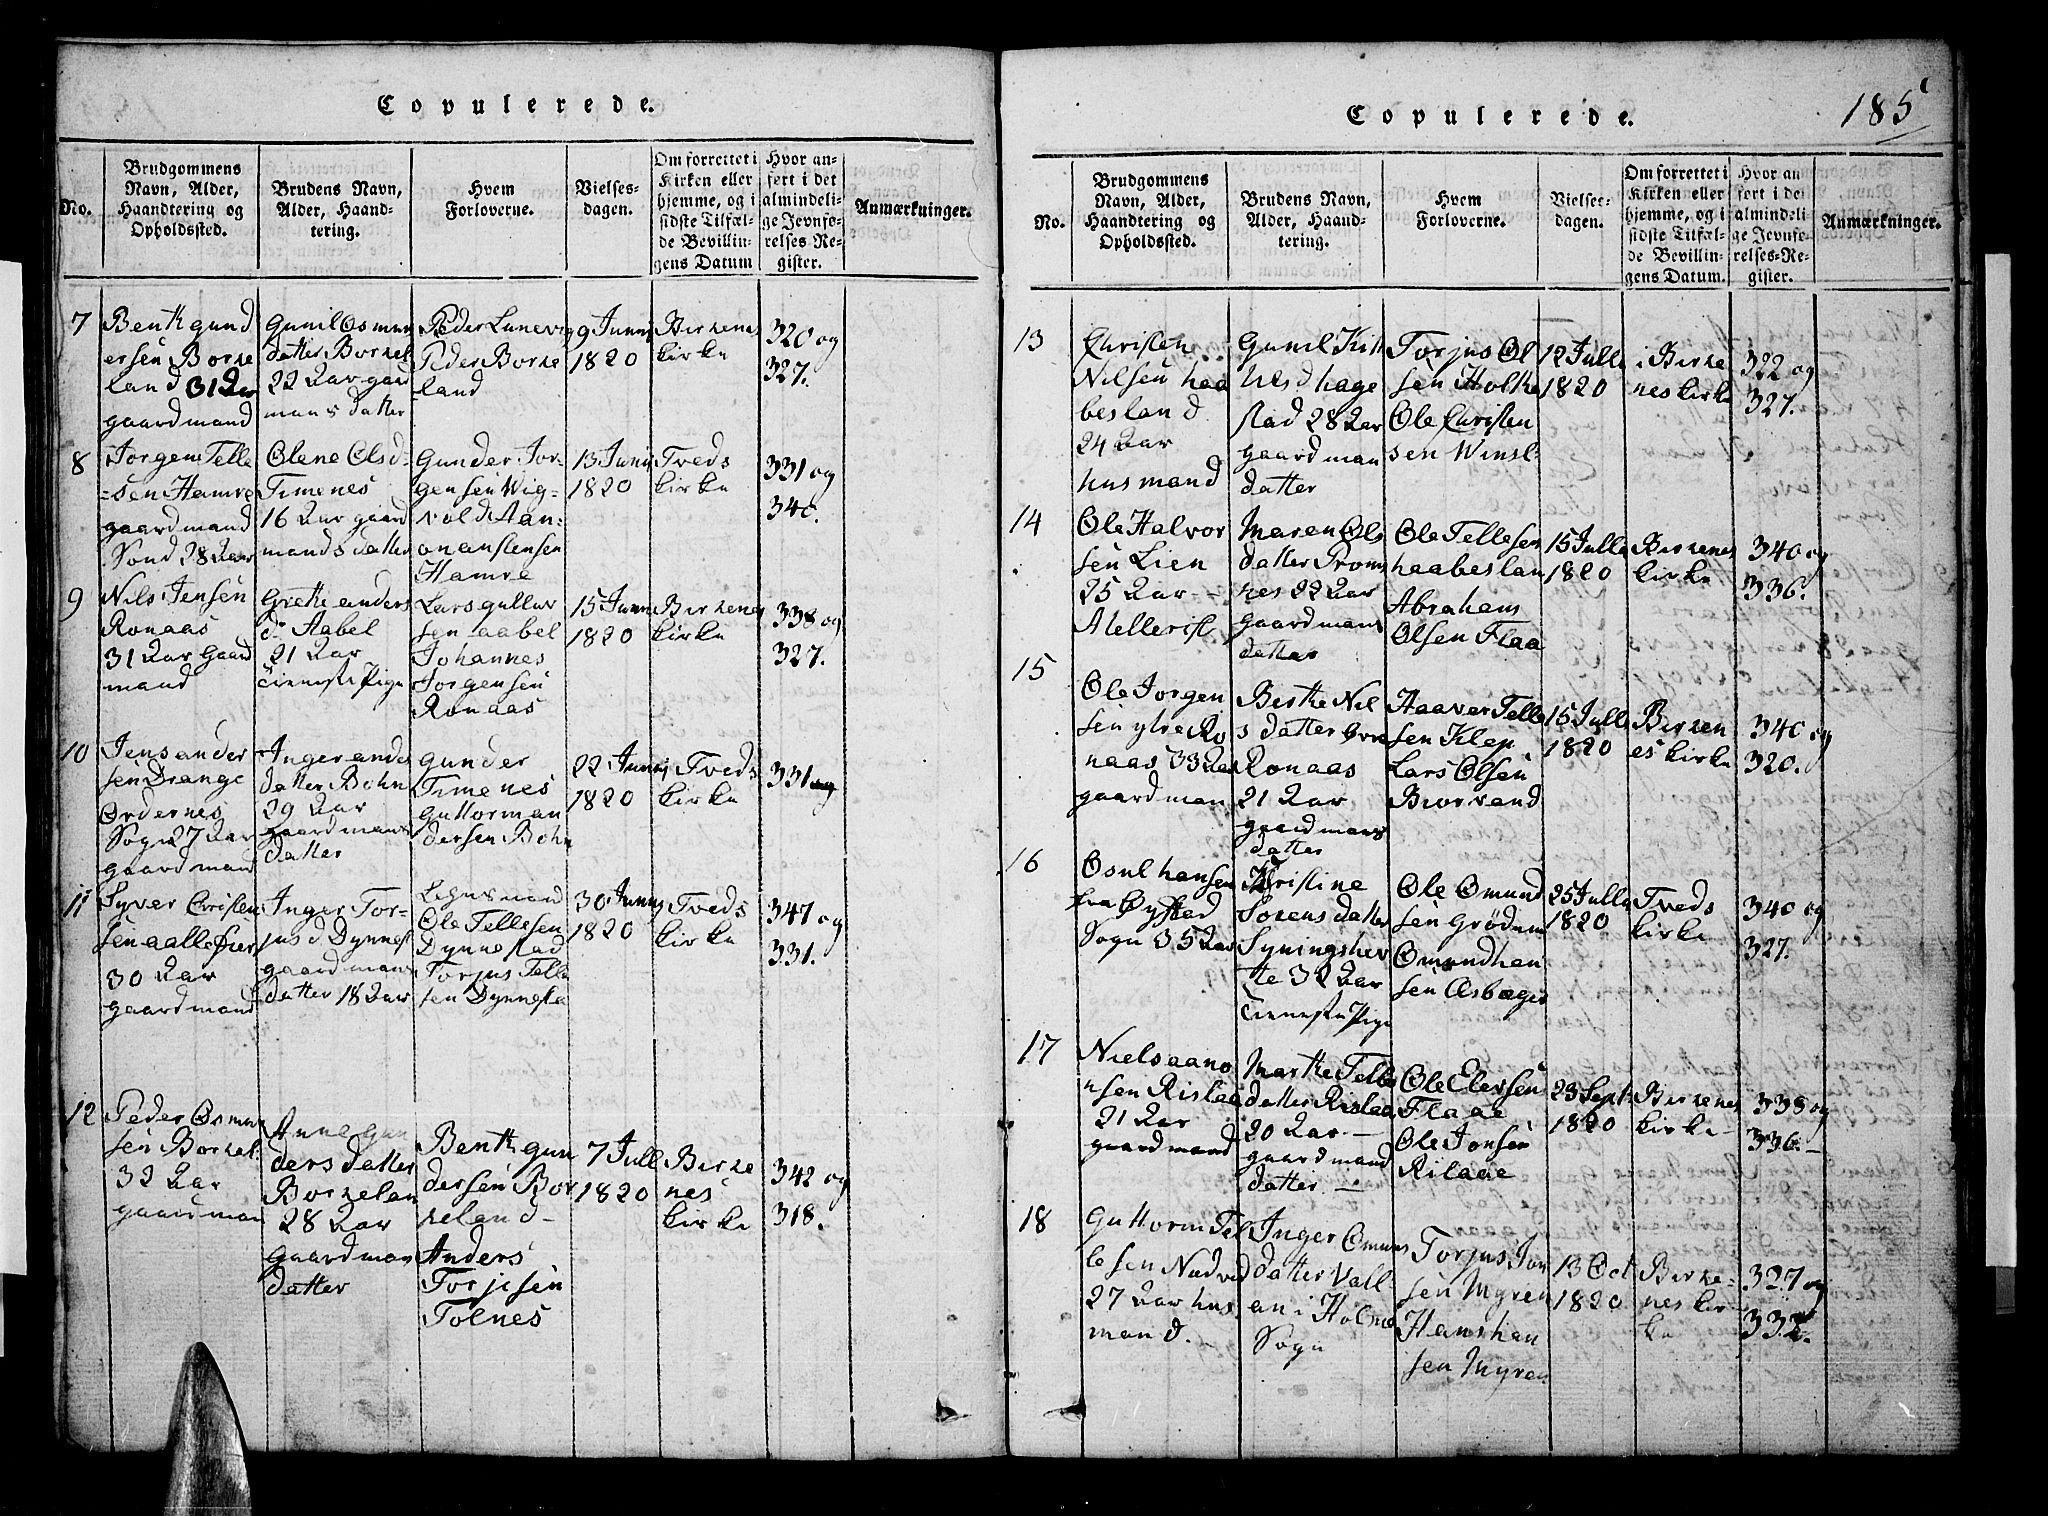 Copulerede.
No.
Brudgommens
Navn, Alder,
Haandtering og
Opholdssted.
Brudens Navn,
Alder, Haand-
tering.
Hvem
Forloverne.
Vielses-
dagen.
Om forrettet i
Kirken eller
hjemme, og i
sidste Tilfæl-
de Bevillin-
gens Datum
Hvor an-
ført i det
almindeli-
ge Jevnfø-
relses-Re-
gister.
Anmærkninger.
7
Bent gund
ersen Borke
land 31 Aar
gaardmand
Gunil Osmun
datter Borkel
22 Aar gaard
mans datter
Peder Lunevig
Peder Borke
land
9 Junij
1820
Birkenes
kirke
320 og
327.
8
Jorgen Telle
-sen Hamre
gaardmand
Sond 28 Aar
Olene Olsd-
Timenes
16 Aar gaard
mands datter
Gunder Jor-
gensen Wig-
vold Aan-
onanstensen
Hamre
13 Junij
1820
Tveds
kirke
331 og
340.
9
Nils Jensen
Ronaas
31 Aar Gaard
mand
Grethe anders
dr Aabel
21 Aar
tieneste Pige
Lars gullov
sen aabel
Johannes
Jorgensen
Ronaas
15 Junij
1820
Birkenes
kirke
338 og
327.
10
Jens ander
sen Drange
Ordernes
Sogn 27 Aar
gaardmand
Inger anders
datter Bohn
29 Aar
gaardmans
datter
gunder
Timenes
guttorman
dersen Bohn
22 Junij
1820
Tveds
kirke
331 og
11
Syver Cristen
sen aalefier
30 Aar
gaardmand
Inger Tor-
jus d Dynnest
gaardmans
datter 18 Aar
Lehnsmand
Ole Tellesen
Dynnestad
Torjus Telle
sen Dynnesta
30 Junij
1820
Tveds
kirke
347 og
331.
12
Peder Osmun
sen Borkel.
32 Aar
gaardman
Anne Gun
ders datter
Borkelan
28 Aar
Gaardman
datter
Bent gun
dersen Bor
keland-
Anders
Torjesen
Tolnes
7 Jull
1820
Birke
nes
kirke
342 og
318.
Copulerede.
185
No.
Brudgommens
Navn, Alder,
Haandtering og
Opholdssted.
Brudens Navn,
Alder, Haand-
tering.
Hvem
Forloverne.
Vielses-
dagen.
Om forrettet i
Kirken eller
hjemme, og i
sidste Tilfæl-
de Bevillin-
gens Datum.
Hvor an
ført i de
almindeli
ge Jevnfø-
relses-Re-
gister.
Anmærkninger.
13
Christen
Nilsen haa
besland
24 Aar
husmand
Gunil Krist
nesd hage
stad 28 Aar
gaardman
datter
Torjus Ol
sen Holke
Ole Christen
sen Winsl-
12 Julli
1820
i Birke
nes kirke
322 og
327.
14
Ole Halvor
sen Lien
25 Aar -
Mellerist
Maren Ols
datter Trom
nes 22 Aar
gaardmans
datter
Ole Tellesen
haabeslan
Abraham
Olsen Flaa
15 Julli
1820
Birkenes
kirke
340 og
336.
15
Ole Jorgen
sen ytre Ro
naas 33 Aar
gaardman
Berthe Nil
s datter Øvre
Ronaas
21 Aar
gaardmans
datter
Haaver Telle
sen Klep
Lars Olsen
Biorvand
15 Julli
1820
Birken
es kirke
340 og
320.
16
Osul hansen
fra Øysted
Sogn 35 Aar
Kristine
Sorens datter
Syningshev
te 32 Aar
tieneste Pige
Ole Omund
sen Grødum
Omund han
sen Asbøger
25 Julli
1820
Tveds
kirke
340 og
327.
17
Niels aano
nsen Rislaa
21 Aar
gaardmand
Marthe Telle
datter Rislaa
20 Aar -
gaardmand
datter -
Ole Elevsen
Flaae
Ole Jonsen
Rilaae
23 Sept
1820
Birkenes
kirke -
338 og
336.-
18
Guttorm Tel
lesen Nudved
27 Aar hus
mand.
Inger Omuns
datter Vall
an i Holme
Sogn
Torjus Jon
sen Myren
Hans han
sen Myren
13 Oct
1820
Birke-
nes kir-
ke
327 og
332.